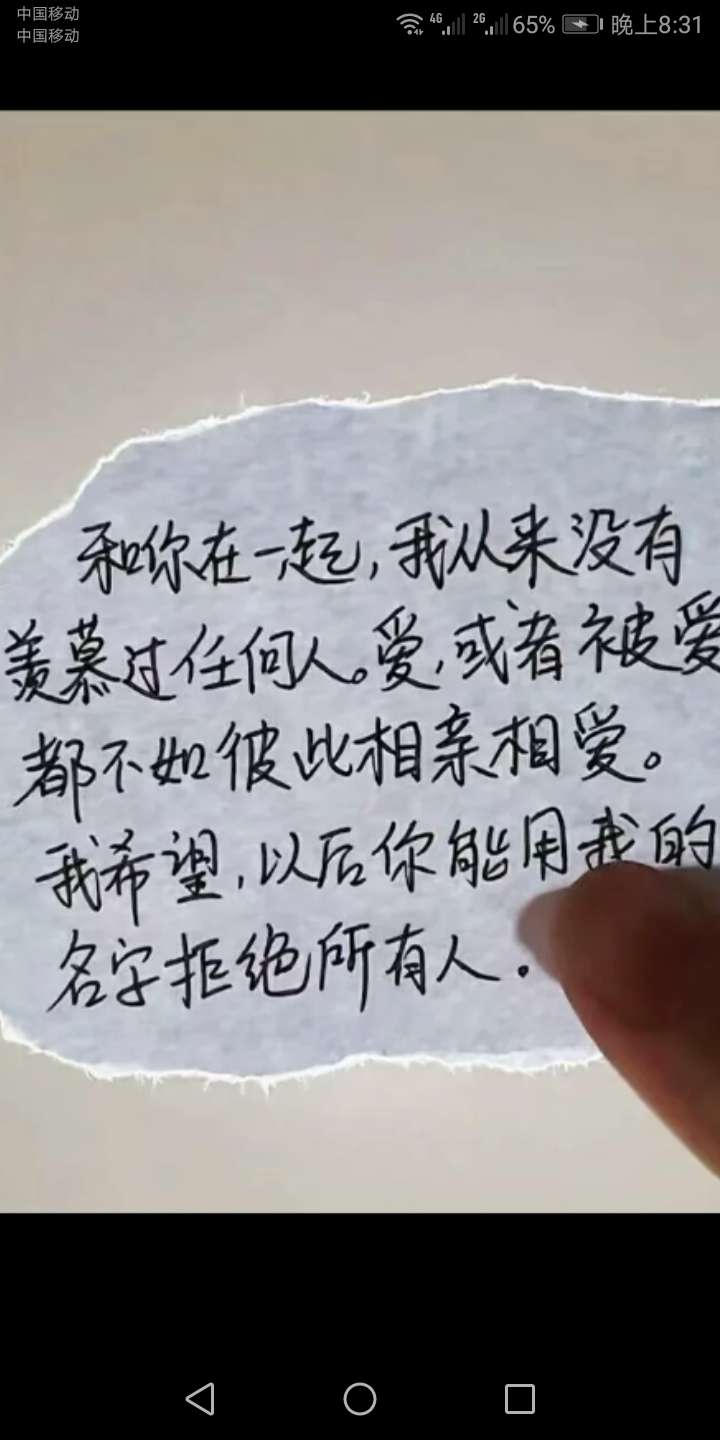 中国移动
中国移动
4G 2G 65% 晚上8:31
和你在一起,我从来没有
羡慕过任何人。爱,或者被爱
都不如彼此相亲相爱。
我希望,以后你能用我的
名字拒绝所有人.